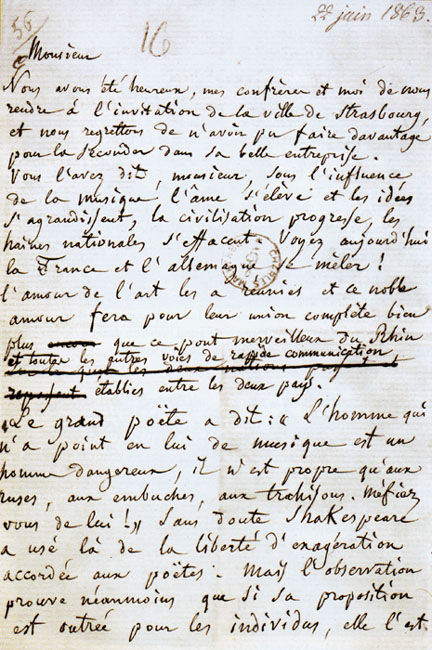 56
16
22 juin 1863.
Monsieur
Nous avons été heureux, mes confrères et moi de nous
rendre à l'invitation de la ville de Strasbourg,
et nous regrettons de n'avoir pu faire davantage
pour la seconder dans sa belle entreprise.
Vous l'avez dit, monsieur, sous l'influence
de la musique l'âme s'élève et les idées
s'agrandissent, la civilisation progresse, les
haines nationales s'effacent. Voyez aujourd'hui
la France et l'allemagne se mêler!
l'amour de l'art les a réunies et ce noble
amour fera pour leur union complète bien
plus encore que ce pont merveilleux du Rhin
et toutes les autres voies de rapide communication
établies entre les deux pays.
Le grand poëte a dit: « L'homme qui
n'a point en lui de musique est un
homme dangereux, il n'est propre qu'aux
ruses, aux embuches, aux trahisons. méfiez
vous de lui!» Sans doute Shakespeare
a usé là de la liberté d'exagération
accordée aux poëtes. Mais l'observation
prouve néanmoins que si sa proposition
est outrée pour les individus, elle l'est